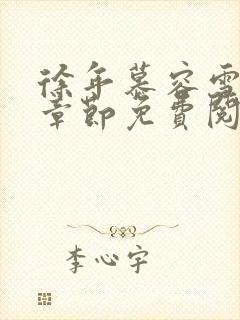 徐年慕容雪
章節免費閱
李心宇